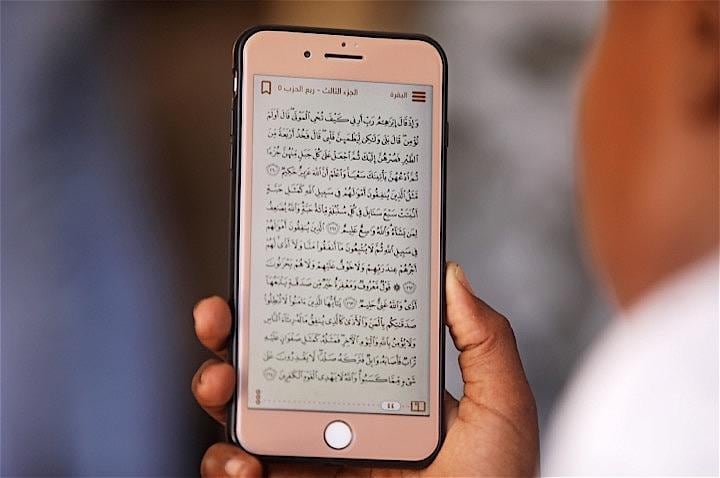 البقرة الجزء الثالث - ربع الحزب ٥
وَإِذْ قَالَ إِبْرَٰهِـۧمُ رَبِّ أَرِنِى كَيْفَ تُحْىِ ٱلْمَوْتَىٰ ۖ قَالَ أَوَلَمْ
تُؤْمِن ۖ قَالَ بَلَىٰ وَلَـٰكِن لِّيَطْمَئِنَّ قَلْبِى ۖ قَالَ فَخُذْ أَرْبَعَةً مِّنَ
ٱلطَّيْرِ فَصُرْهُنَّ إِلَيْكَ ثُمَّ ٱجْعَلْ عَلَىٰ كُلِّ جَبَلٍ مِّنْهُنَّ جُزْءًا
ثُمَّ ٱدْعُهُنَّ يَأْتِينَكَ سَعْيًا ۚ وَٱعْلَمْ أَنَّ ٱللَّهَ عَزِيزٌ حَكِيمٌ ٢٦٠
مَّثَلُ ٱلَّذِينَ يُنفِقُونَ أَمْوَٰلَهُمْ فِى سَبِيلِ ٱللَّهِ كَمَثَلِ حَبَّةٍ
أَنۢبَتَتْ سَبْعَ سَنَابِلَ فِى كُلِّ سُنۢبُلَةٍ مِّا۟ئَةُ حَبَّةٍ ۗ وَٱللَّهُ يُضَـٰعِفُ
لِمَن يَشَآءُ ۗ وَٱللَّهُ وَٰسِعٌ عَلِيمٌ ٢٦١ ٱلَّذِينَ يُنفِقُونَ أَمْوَٰلَهُمْ
فِى سَبِيلِ ٱللَّهِ ثُمَّ لَا يُتْبِعُونَ مَآ أَنفَقُوا۟ مَنًّا وَلَآ أَذًى ۙ لَّهُمْ
أَجْرُهُمْ عِندَ رَبِّهِمْ وَلَا خَوْفٌ عَلَيْهِمْ وَلَا هُمْ يَحْزَنُونَ
٢٦٢ ۞ قَوْلٌ مَّعْرُوفٌ وَمَغْفِرَةٌ خَيْرٌ مِّن صَدَقَةٍ يَتْبَعُهَآ
أَذًى ۗ وَٱللَّهُ غَنِىٌّ حَلِيمٌ ٢٦٣ يَـٰٓأَيُّهَا ٱلَّذِينَ ءَامَنُوا۟ لَا تُبْطِلُوا۟
صَدَقَـٰتِكُم بِٱلْمَنِّ وَٱلْأَذَىٰ كَٱلَّذِى يُنفِقُ مَالَهُۥ رِئَآءَ ٱلنَّاسِ
وَلَا يُؤْمِنُ بِٱللَّهِ وَٱلْيَوْمِ ٱلْـَٔاخِرِ ۖ فَمَثَلُهُۥ كَمَثَلِ صَفْوَانٍ عَلَيْهِ
تُرَابٌ فَأَصَابَهُۥ وَابِلٌ فَتَرَكَهُۥ صَلْدًا ۖ لَّا يَقْدِرُونَ عَلَىٰ
شَىْءٍ مِّمَّا كَسَبُوا۟ ۗ وَٱللَّهُ لَا يَهْدِى ٱلْقَوْمَ ٱلْكَـٰفِرِينَ ٢٦٤
٤٤